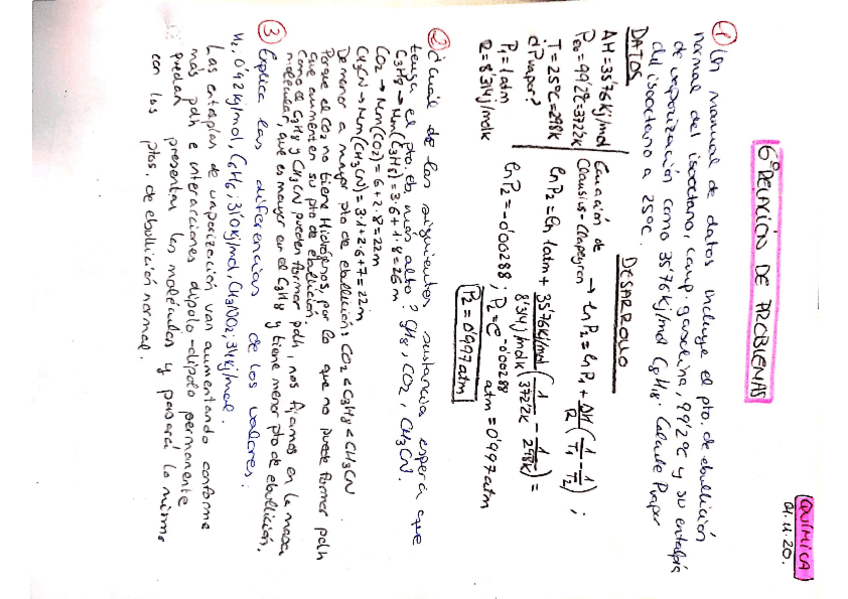 QUÍMICA
04.11.20.
6º RELACIÓN DE PROBLEMAS
① Un manual de datos incluye el pto. de ebullición
normal del isooctano, comp. gasolina, 99'2ºC y su entalpía
de vaporización como 35'76 kj/mol C8H18. Calcule Pvapor
del isooctano a 25ºC.
DATOS
DESARROLLO
ΔH=35'76 kj/mol
Peb=99'2ºC=372'2K
T=25ºC=298K
¿Pvapor?
P1=1atm
R=8'314 j/molK
Ecuación de
Clausius-Clapeyron → ln P2 = ln P1 + ΔH/R (1/T1 - 1/T2) ;
ln P2 = ln 1atm + 35'76kj/mol / 8'314 j/molK (1/372'2K - 1/298K) =
ln P2 = -0'00288 ; P2 = e^-0'00288 atm = 0'997 atm
P2 = 0'997 atm
② ¿Cuál de las siguientes sustancia espera que
tenga el pto. eb. más alto? C3H8, CO2, CH3CN.
C3H8 → Mm(C3H8) = 3·6+1·8 = 26m
CO2 → Mm(CO2) = 6+2·8 = 22m
CH3CN → Mm(CH3CN) = 3·1+2·6+7 = 22m
De menor a mayor pto de ebullición: CO2 < C3H8 < CH3CN.
Porque el CO2 no tiene Hidrógenos, por lo que no puede formar pdh
que aumenten su pto de ebullición.
Como el C3H8 y CH3CN pueden formar pdh, nos fijamos en la masa
molecular, que es mayor en el C3H8 y tiene menor pto de ebullición.
③ Explica las diferencias de los valores.
H2: 0'92 kj/mol, C6H6: 31'0 kj/mol, CH3NO2: 34 kj/mol.
Las entalpías de vaporización van aumentando conforme
más pdh e interacciones dipolo-dipolo permanente
puedan presentar las moléculas y pasará lo mismo
con los ptos. de ebullición normal.